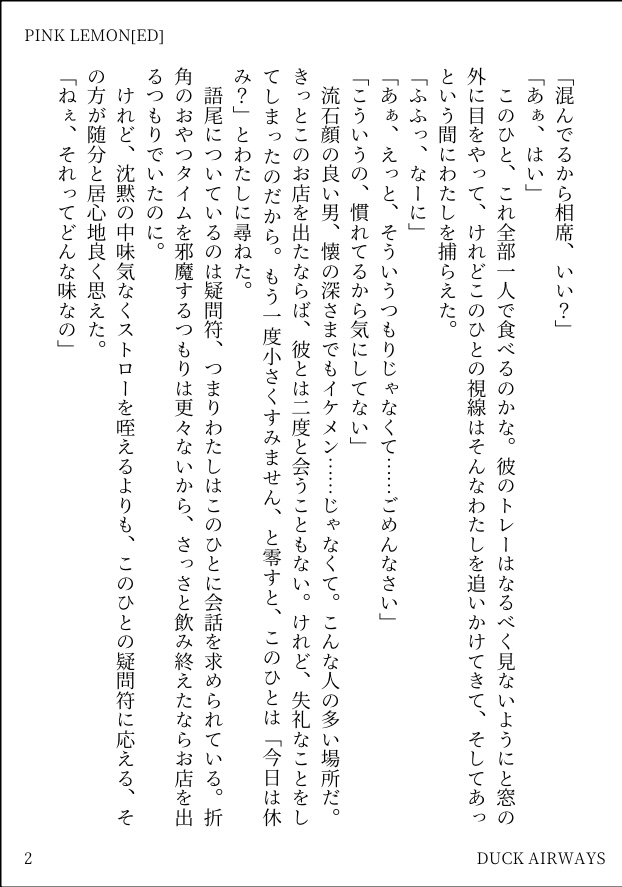 PINK LEMON[ED]
「混んでるから相席、いい？」
「あぁ、はい」
　このひと、これ全部一人で食べるのかな。彼のトレーはなるべく見ないようにと窓の
外に目をやって、けれどこのひとの視線はそんなわたしを追いかけてきて、そしてあっ
という間にわたしを捕らえた。
「ふふっ、なーに」
「あぁ、えっと、そういうつもりじゃなくて……ごめんなさい」
「こういうの、慣れてるから気にしてない」
　流石顔の良い男、懐の深さまでもイケメン……じゃなくて。こんな人の多い場所だ。
きっとこのお店を出たならば、彼とは二度と会うこともない。けれど、失礼なことをし
てしまったのだから。もう一度小さくすみません、と零すと、このひとは「今日は休
み？」とわたしに尋ねた。
　語尾についているのは疑問符、つまりわたしはこのひとに会話を求められている。折
角のおやつタイムを邪魔するつもりは更々ないから、さっさと飲み終えたならお店を出
るつもりでいたのに。
　けれど、沈黙の中味気なくストローを咥えるよりも、このひとの疑問符に応える、そ
の方が随分と居心地良く思えた。
「ねぇ、それってどんな味なの」
2
DUCK AIRWAYS